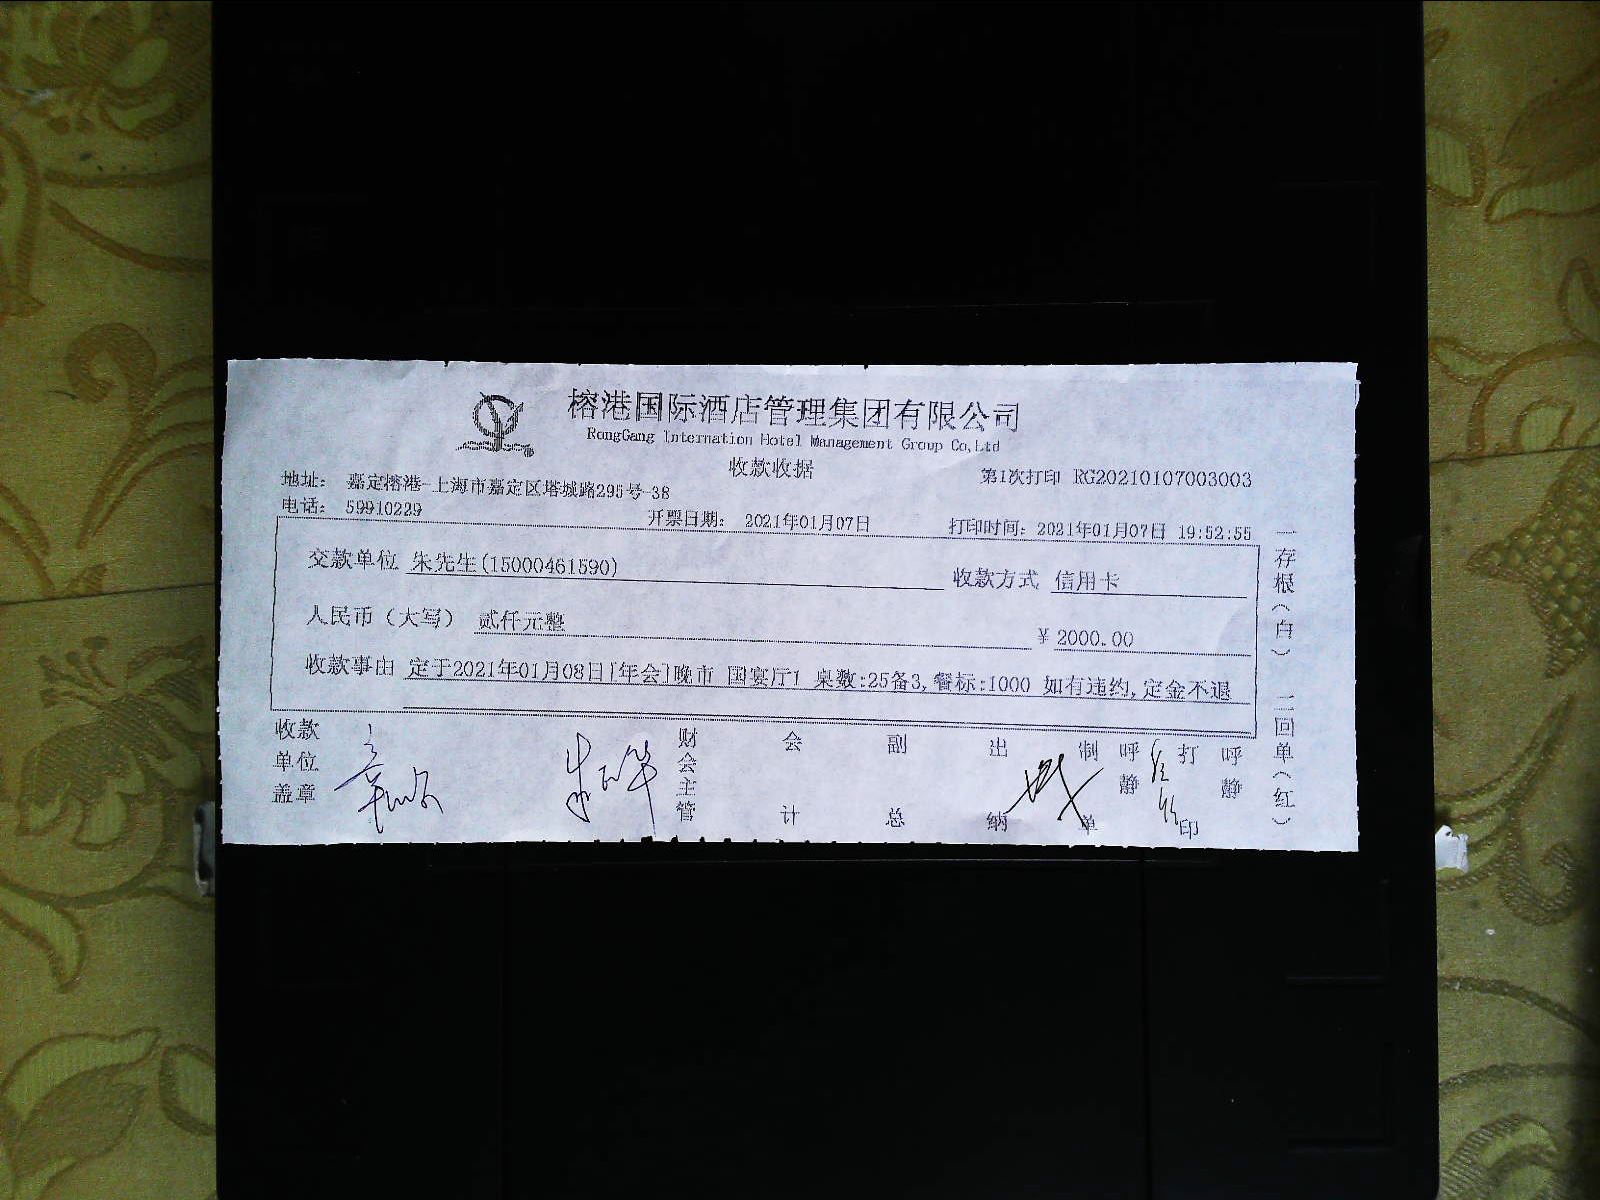 榕港国际酒店管理集团有限公司
RongGang Internation Hotel Management Group Co,Ltd
收款收据
第1次打印 RG20210107003003
地址： 嘉定榕港-上海市嘉定区塔城路295号-38
电话： 59910229
开票日期： 2021年01月07日
打印时间：2021年01月07日 19:52:55
交款单位 朱先生(15000461590)
收款方式 信用卡
人民币（大写） 贰仟元整
¥ 2000.00
收款事由 定于2021年01月08日[年会]晚市 国宴厅1 桌数:25备3,餐标:1000 如有违约,定金不退
收款单位盖章
财会主管
会计
副总
出纳
制单 呼静
打印 呼静
一存根（白） 二回单（红）